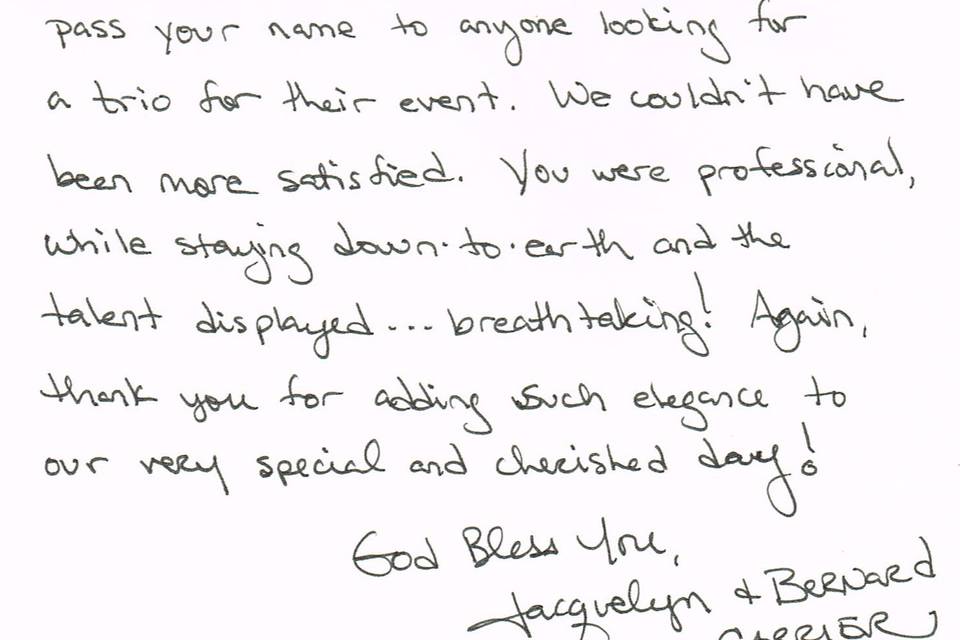 pass your name to anyone looking for
a trio for their event. We couldn't have
been more satisfied. You were professional,
while staying down·to·earth and the
talent displayed... breathtaking! Again,
thank you for adding such elegance to
our very special and cherished day!
God Bless You,
Jacquelyn & Bernard